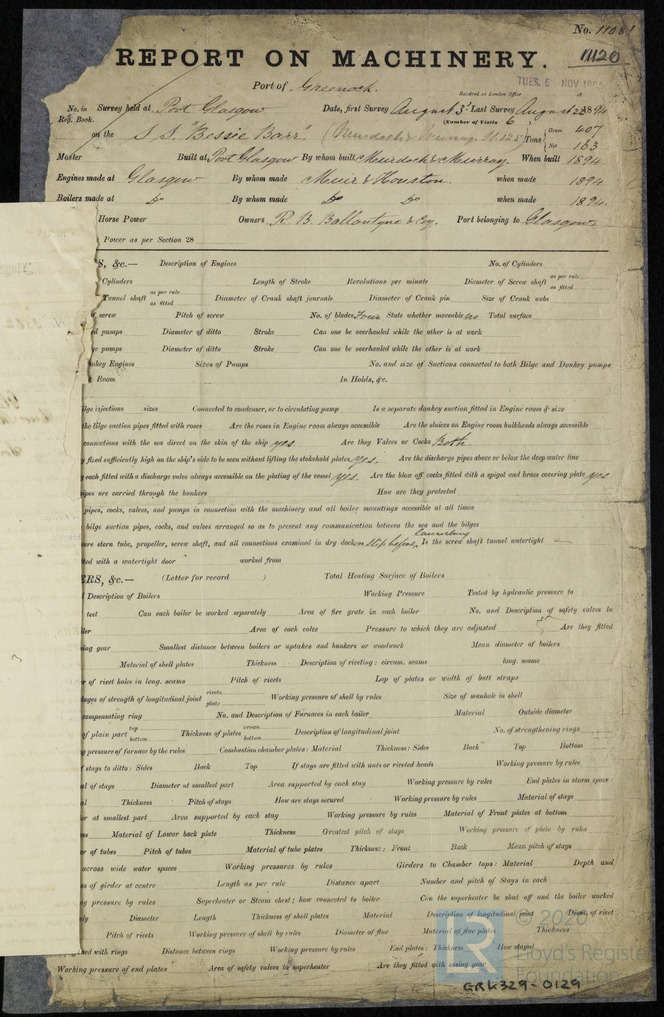 No. 11081
REPORT ON MACHINERY.
11120
Port of Greenock.
Received at London Office
TUES. 6 NOV 18
No. in Reg. Book.
Survey held at Port Glasgow Date, first Survey August 3rd Last Survey August 23 1894
(Number of Visits 6)
on the S.S. "Bessie Barr" Tons Gross 407 Net 163
Master Built at Port Glasgow By whom built Murdoch & Murray. When built 1894
Engines made at Glasgow By whom made Muir & Houston. when made 1894
Boilers made at Do By whom made Do Do when made 1894
Horse Power Owners R. B. Ballantyne & Coy. Port belonging to Glasgow
Power as per Section 28
S, &c.— Description of Engines No. of Cylinders
Cylinders Length of Stroke Revolutions per minute Diameter of Screw shaft as per rule as fitted
Tunnel shaft as per rule as fitted Diameter of Crank shaft journals Diameter of Crank pin Size of Crank webs
screw Pitch of screw No. of blades Four State whether moveable no Total surface
d pumps Diameter of ditto Stroke Can one be overhauled while the other is at work
e pumps Diameter of ditto Stroke Can one be overhauled while the other is at work
nkey Engines Sizes of Pumps No. and size of Suctions connected to both Bilge and Donkey pumps
Room In Holds, &c.
ilge injections sizes Connected to condenser, or to circulating pump Is a separate donkey suction fitted in Engine room & size
the bilge suction pipes fitted with roses Are the roses in Engine room always accessible Are the sluices on Engine room bulkheads always accessible
connections with the sea direct on the skin of the ship yes. Are they Valves or Cocks Both
fixed sufficiently high on the ship's side to be seen without lifting the stokehold plates yes. Are the discharge pipes above or below the deep water line
each fitted with a discharge valve always accessible on the plating of the vessel yes. Are the blow off cocks fitted with a spigot and brass covering plate yes
ipes are carried through the bunkers How are they protected
pipes, cocks, valves, and pumps in connection with the machinery and all boiler mountings accessible at all times
bilge suction pipes, cocks, and valves arranged so as to prevent any communication between the sea and the bilges
ere stern tube, propeller, screw shaft, and all connections examined in dry dock on slip before launching Is the screw shaft tunnel watertight —
tted with a watertight door worked from
ERS, &c.— (Letter for record ) Total Heating Surface of Boilers
Description of Boilers Working Pressure Tested by hydraulic pressure to
test Can each boiler be worked separately Area of fire grate in each boiler No. and Description of safety valves to
iler Area of each valve Pressure to which they are adjusted Are they fitted
ing gear Smallest distance between boilers or uptakes and bunkers or woodwork Mean diameter of boilers
Material of shell plates Thickness Description of riveting: circum. seams long. seams
r of rivet holes in long. seams Pitch of rivets Lap of plates or width of butt straps
tages of strength of longitudinal joint rivets plate Working pressure of shell by rules Size of manhole in shell
compensating ring No. and Description of Furnaces in each boiler Material Outside diameter
of plain part top bottom Thickness of plates crown bottom Description of longitudinal joint No. of strengthening rings
g pressure of furnace by the rules Combustion chamber plates: Material Thickness: Sides Back Top Bottom
f stays to ditto: Sides Back Top If stays are fitted with nuts or riveted heads Working pressure by rules
al of stays Diameter at smallest part Area supported by each stay Working pressure by rules End plates in steam space:
al Thickness Pitch of stays How are stays secured Working pressure by rules Material of stays
er at smallest part Area supported by each stay Working pressure by rules Material of Front plates at bottom
ss Material of Lower back plate Thickness Greatest pitch of stays Working pressure of plate by rules
er of tubes Pitch of tubes Material of tube plates Thickness: Front Back Mean pitch of stays
across wide water spaces Working pressures by rules Girders to Chamber tops: Material Depth and
ss of girder at centre Length as per rule Distance apart Number and pitch of Stays in each
ng pressure by rules Superheater or Steam chest; how connected to boiler Can the superheater be shut off and the boiler worked
ly Diameter Length Thickness of shell plates Material Description of longitudinal joint Diam. of rivet
Pitch of rivets Working pressure of shell by rules Diameter of flue Material of flue plates Thickness
ned with rings Distance between rings Working pressure by rules End plates: Thickness How stayed
Working pressure of end plates Area of safety valves to superheater Are they fitted with easing gear
LR
© 2020
Lloyd's Register
Foundation
GRK329-0129